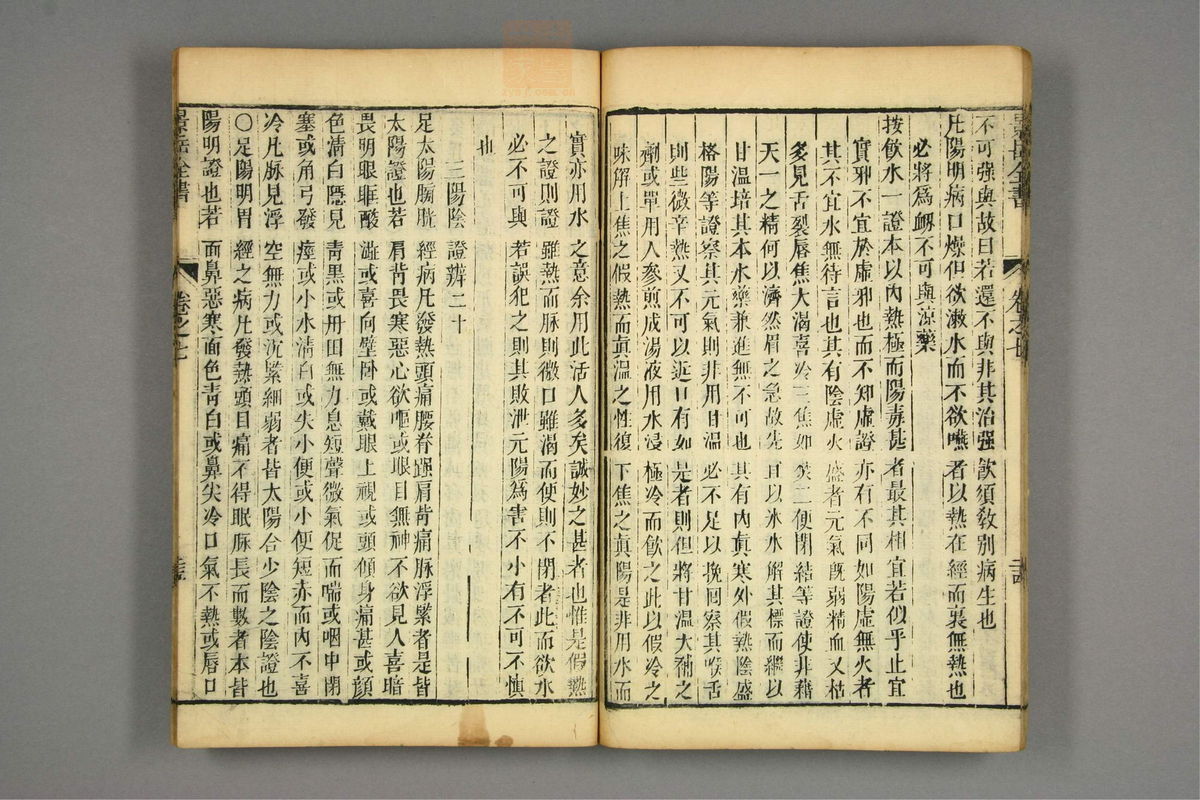 景岳全書 卷之七
不可强與故曰若還不與非其治强飲須教别病生也
凡陽明病口燥但欲漱水而不欲嚥者以熱在經而裏無熱也
必將爲衂不可與凉藥
按飲水一證本以内熱極而陽毒甚者最其相宜若似乎止宜
實邪不宜於虚邪也而不知虚證亦有不同如陽虚無火者
其不宜水無待言也其有陰虚火盛者元氣旣弱精血又枯
多見舌裂唇焦大渴喜冷三焦如焚二便閉結等證使非藉
天一之精何以濟然眉之急故先宜以氷水解其標而繼以
甘温培其本水藥兼進無不可也其有内眞寒外假熱陰盛
格陽等證察其元氣則非用甘温必不足以挽囘察其喉舌
則些微辛熱又不可以近口有如是者則但將甘温大補之
劑或單用人參煎成湯液用水浸極冷而飲之此以假冷之
味解上焦之假熱而眞温之性復下焦之眞陽是非用水而
實亦用水之意余用此活人多矣誠妙之甚者也惟是假熱
之證則證雖熱而脉則微口雖渴而便則不閉者此而欲水
必不可與若誤犯之則其敗泄元陽爲害不小有不可不愼
也
三陽陰證辨二十
足太陽膀胱經病凡發熱頭痛腰脊强肩背痛脉浮緊者是皆
太陽證也若肩背畏寒惡心欲嘔或眼目無神不欲見人喜暗
畏明眼眶酸澁或喜向壁卧或戴眼上視或頭傾身痛甚或顔
色清白隱見青黑或丹田無力息短聲微氣促而喘或咽中閉
塞或角弓發痙或小水清白或失小便或小便短赤而内不喜
冷凡脉見浮空無力或沉緊細弱者皆太陽合少陰之陰證也
○足陽明胃經之病凡發熱頭目痛不得眠脉長而數者本皆
陽明證也若面鼻惡寒面色青白或鼻尖冷口氣不熱或唇口
景岳全書 卷之七